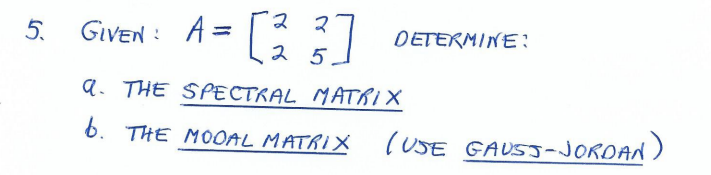 5. GIVEN: A = [2 2; 2 5] DETERMINE:
a. THE SPECTRAL MATRIX
b. THE MODAL MATRIX (USE GAUSS-JORDAN)